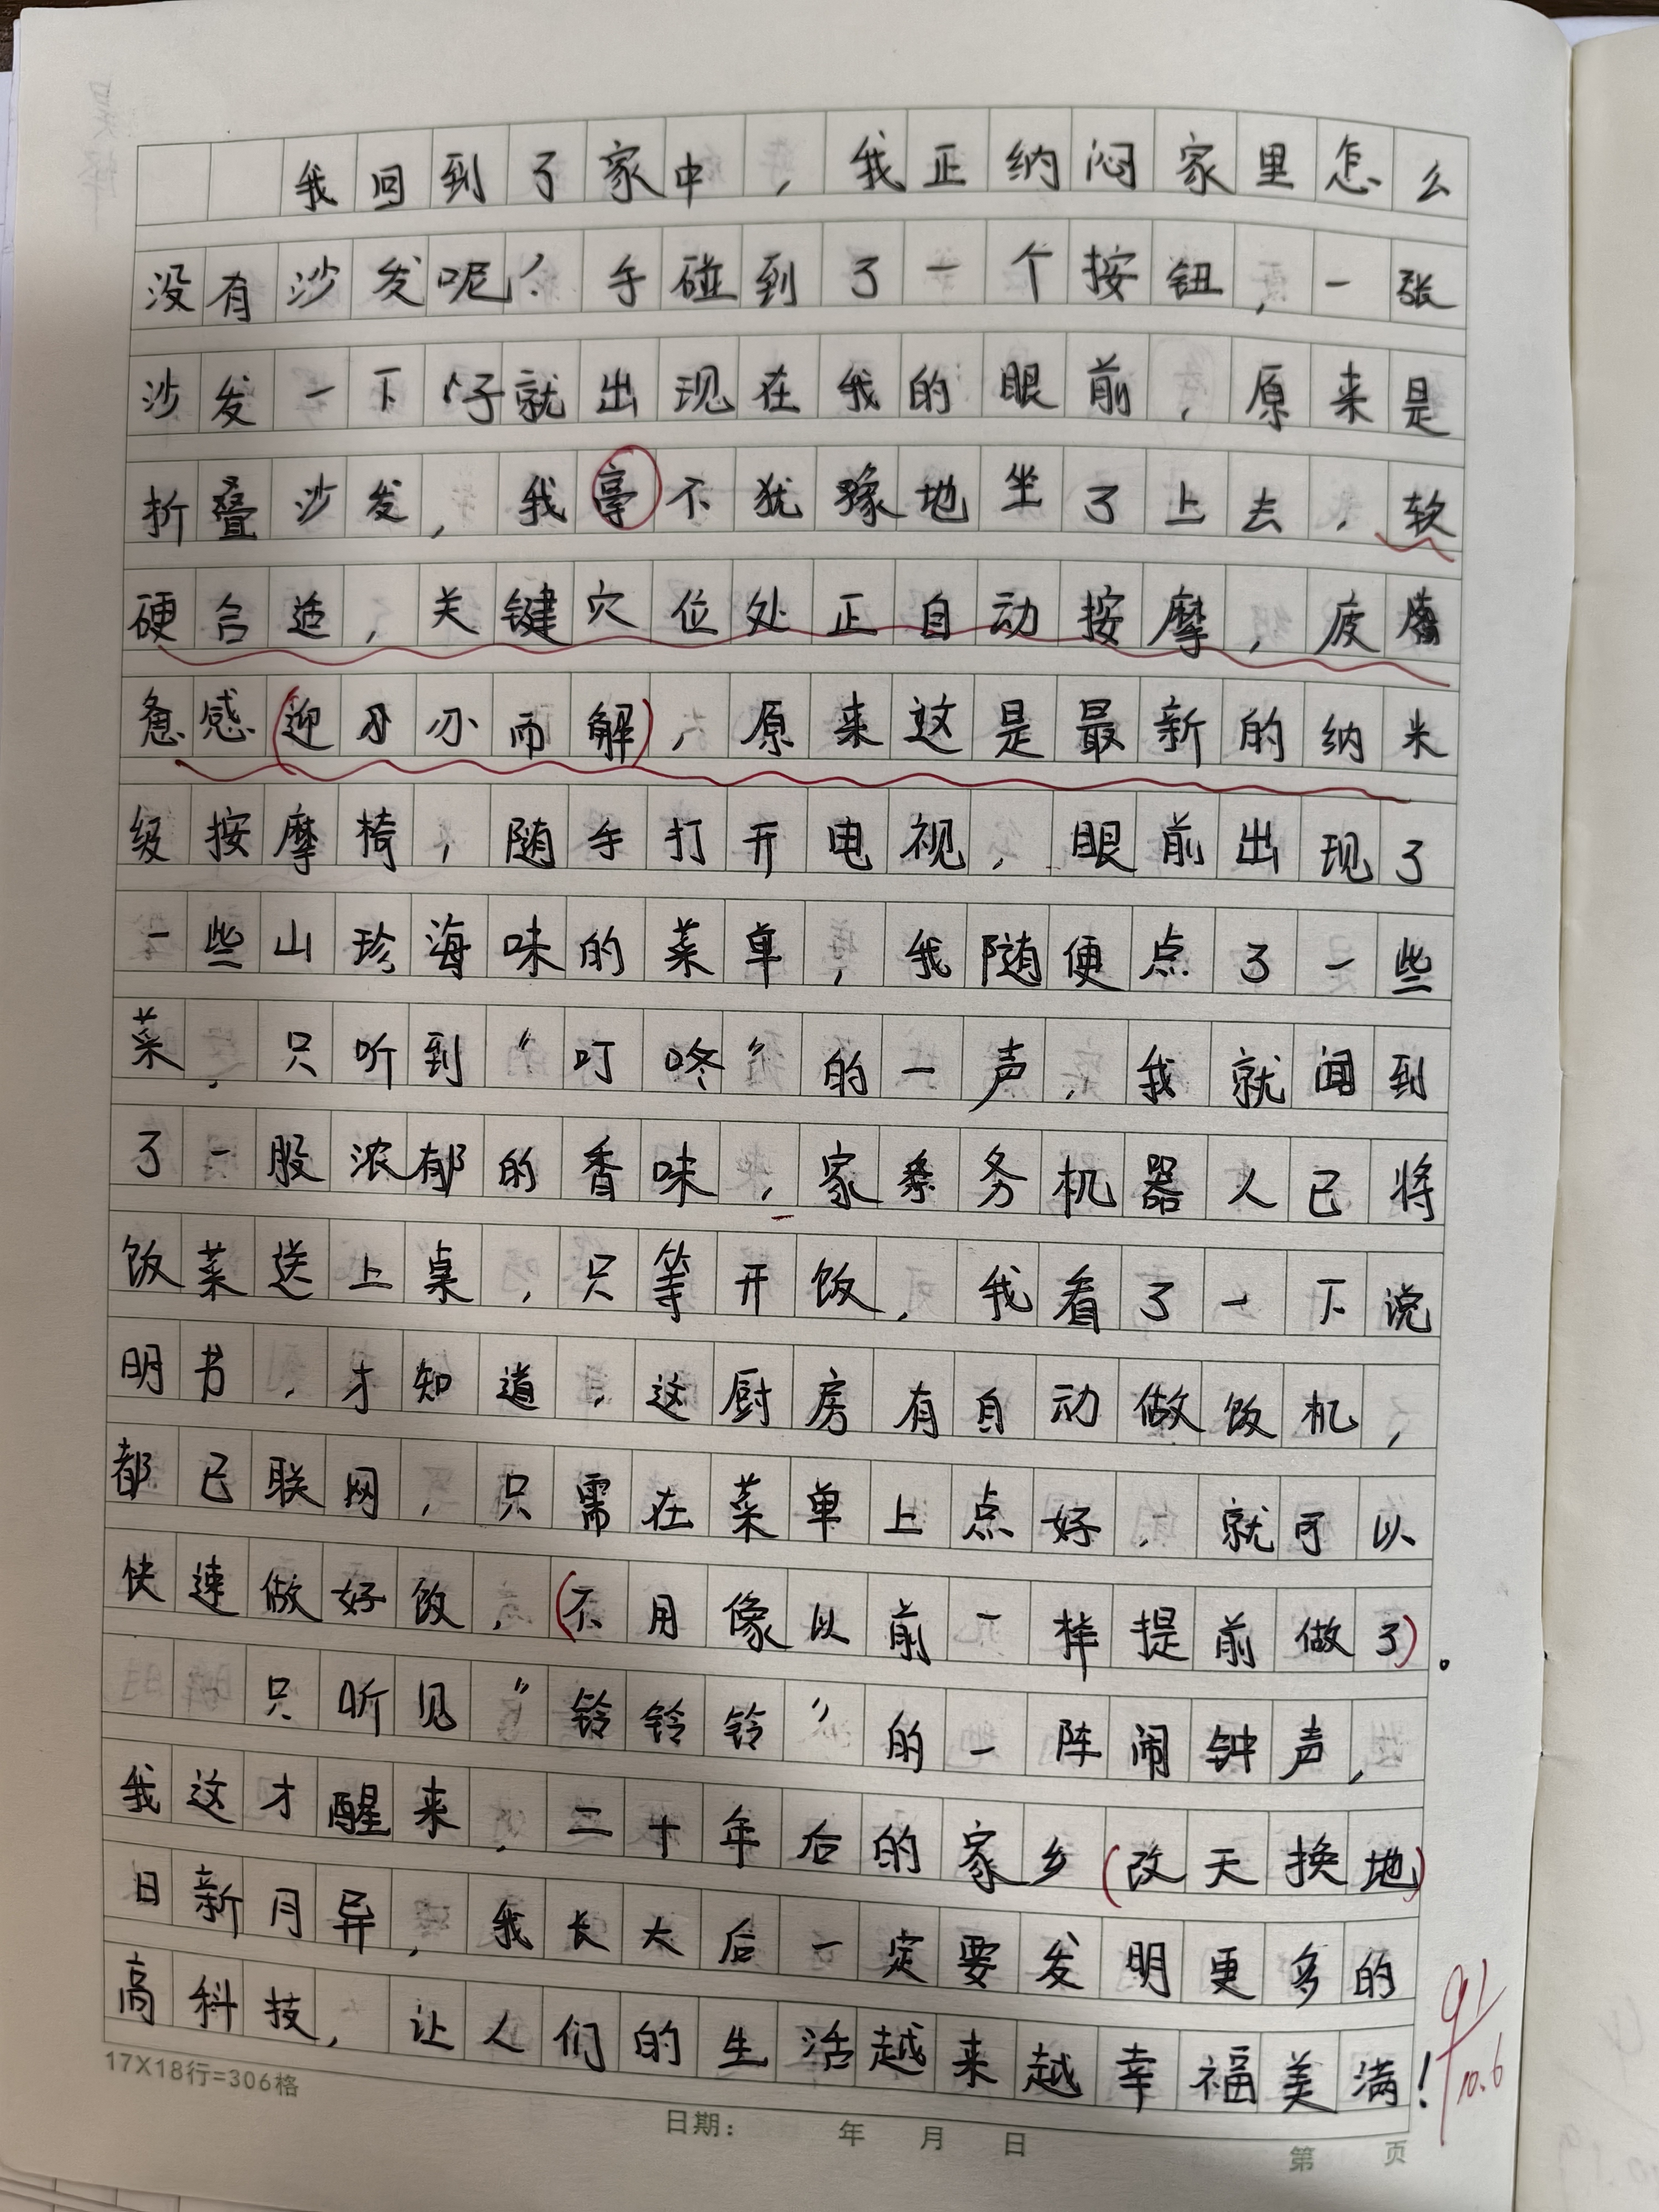 我回到了家中，我正纳闷家里怎么
没有沙发呢！手碰到了一个按钮，一张
沙发一下子就出现在我的眼前，原来是
折叠沙发，我毫不犹豫地坐了上去，软
硬合适，关键穴位处正自动按摩，疲
惫感迎刃而解，原来这是最新的纳米
级按摩椅，随手打开电视，眼前出现了
一些山珍海味的菜单，我随便点了一些
菜，只听到“叮咚”的一声，我就闻到
了一股浓郁的香味，家务机器人已将
饭菜送上桌，只等开饭，我看了一下说
明书，才知道，这厨房有自动做饭机，
都已联网，只需在菜单上点好，就可以
快速做好饭，(不用像以前一样提前做了)。
只听见“铃铃铃”的一阵闹钟声，
我这才醒来，二十年后的家乡(改天换地)
日新月异，我长大后一定要发明更多的
高科技，让人们的生活越来越幸福美满！
91
10.6
17X18行=306格
日期： 年 月 日
第 页